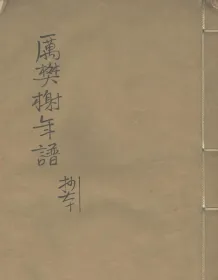 厲樊榭年譜
抄本